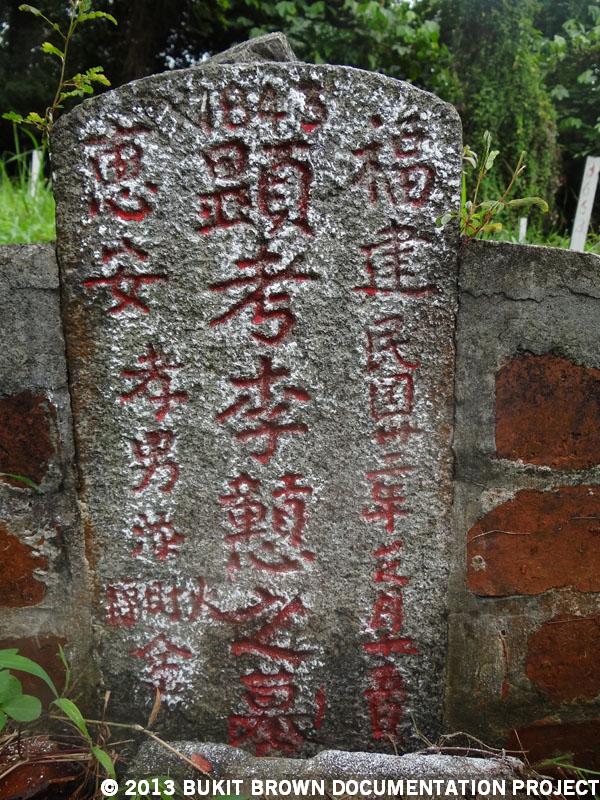 1843
福建
民国廿三年月十日
顕考李之墓
惠安
孝男
財
金
© 2013 BUKIT BROWN DOCUMENTATION PROJECT